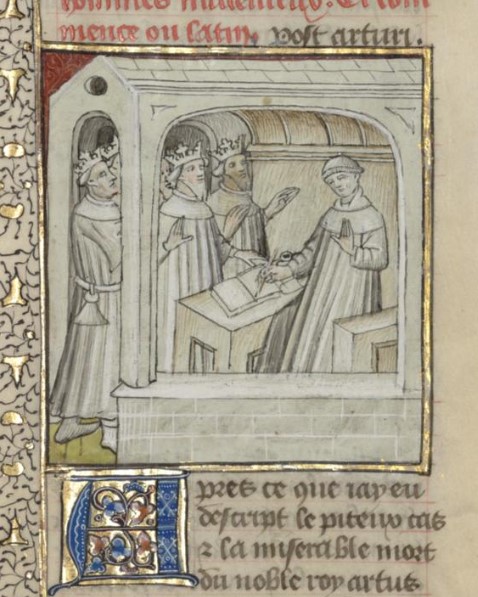 hommes maleureux. Et com
mence ou latin, Post arturi.
Apres ce que iay eu
descript le piteux cas
⁊ la miserable mort
du noble roy artus